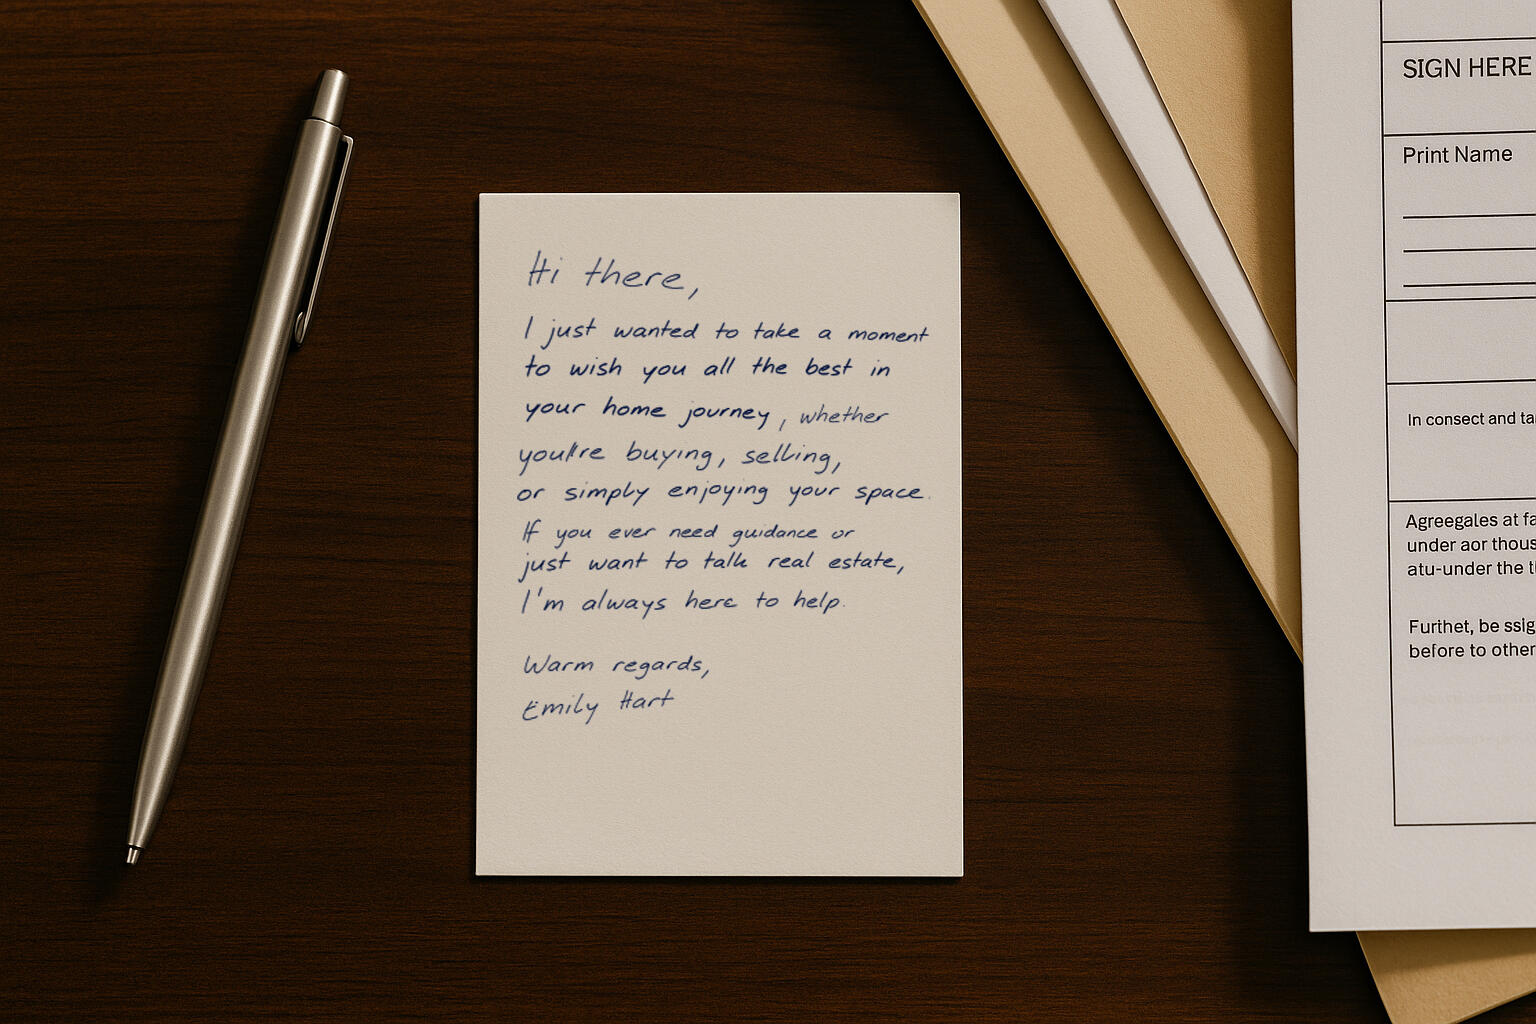 Hi there,
I just wanted to take a moment
to wish you all the best in
your home journey, whether
you're buying, selling,
or simply enjoying your space.
If you ever need guidance or
just want to talk real estate,
I'm always here to help.
Warm regards,
Emily Hart
SIGN HERE
Print Name
In consect and ta
Agreegales at fa
under aor thous
atu-under the t
Furthet, be ssig
before to other